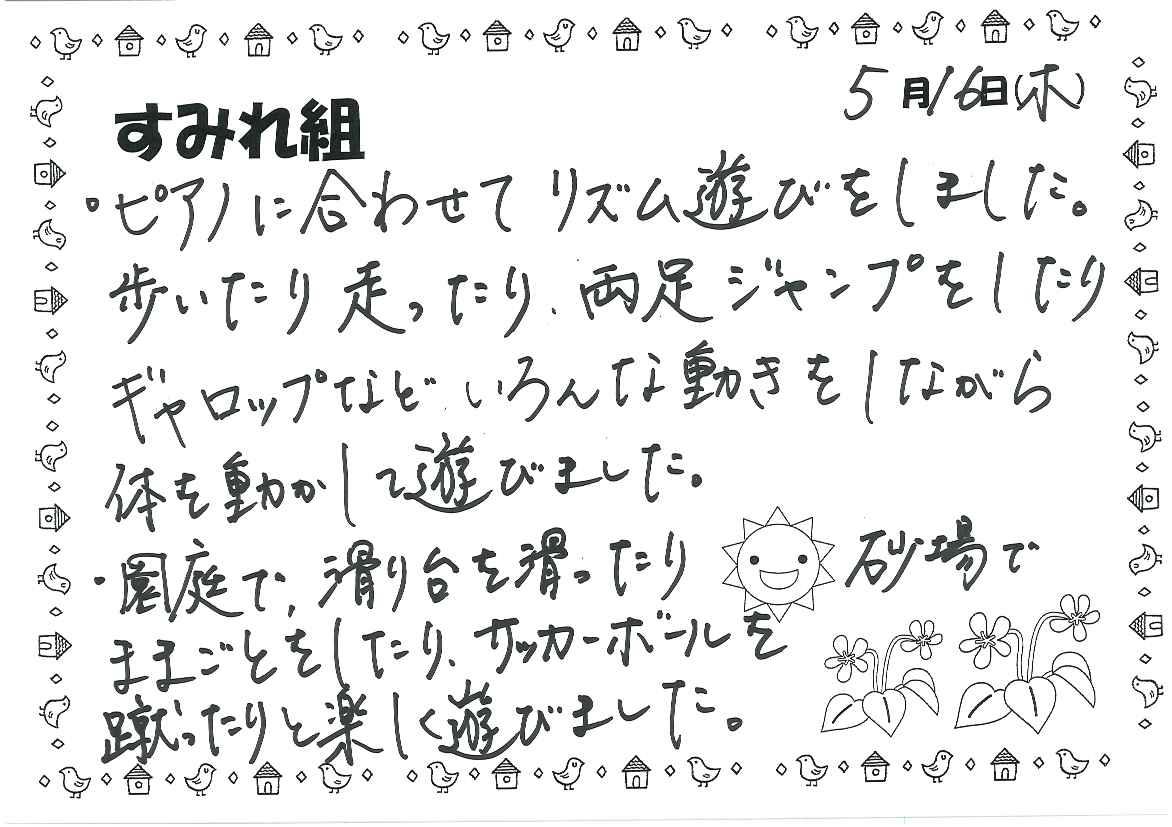 5月16日(木)
すみれ組
・ピアノに合わせてリズム遊びをしました。
歩いたり走ったり、両足ジャンプをしたり
ギャロップなどいろんな動きをしながら
体を動かして遊びました。
・園庭で、滑り台を滑ったり 砂場で
ままごとをしたり、サッカーボールを
蹴ったりと楽しく遊びました。